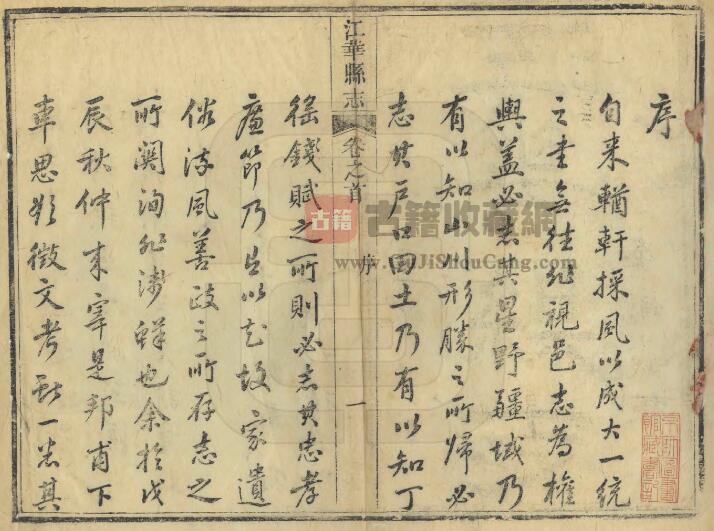 序
自来輶軒採風以成大一統
之書無往非視邑志為權
輿蓋必志其星野疆域乃
有以知山川形勝之所歸必
志其戶口田土乃有以知丁
江華縣志
卷之首
序
一
徭錢賦之所則必志其忠孝
廉節乃足以知故家遺
俗流風善政之所存志之
所關洵非淺鮮也余於戊
辰秋仲来宰是邦甫下
車思欲徵文考獻一悉其
古籍
古籍收藏網
www.GuJiShouCang.com